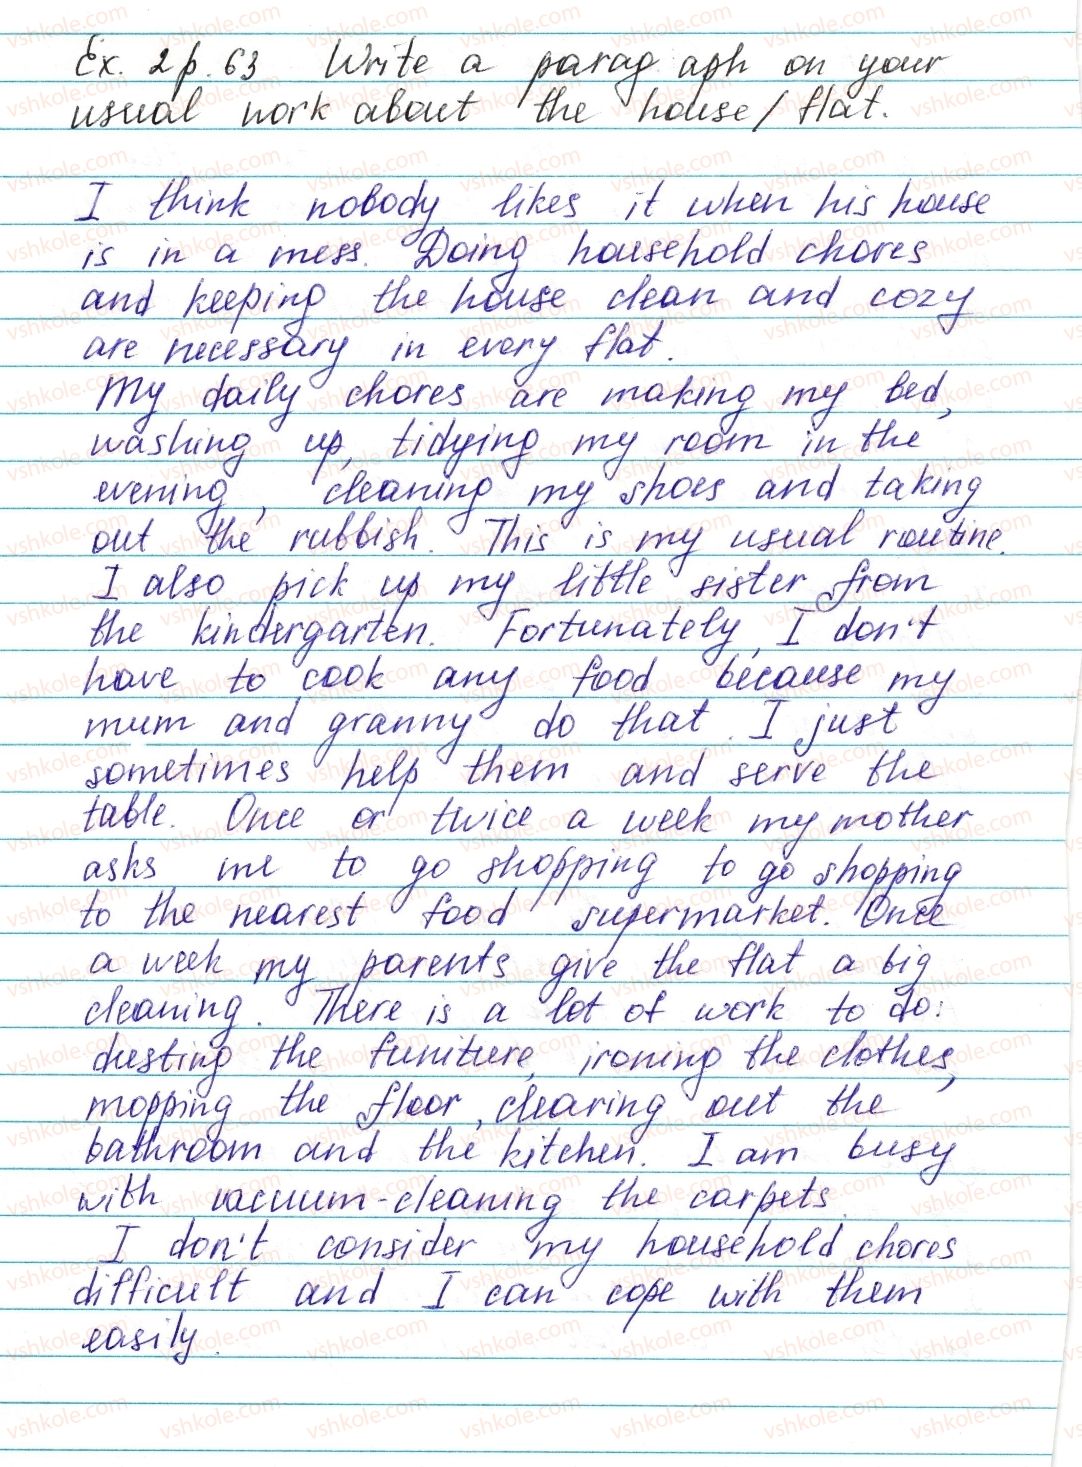 Ex. 2 p. 63 Write a parag aph on your
usual work about the house / flat.
I think nobody likes it when his house
is in a mess. Doing household chores
and keeping the house clean and cozy
are necessary in every flat.
My daily chores are making my bed,
washing up, tidying my room in the
evening, cleaning my shoes and taking
out the rubbish. This is my usual routine.
I also pick up my little sister from
the kindergarten. Fortunately, I don't
have to cook any food because my
mum and granny do that. I just
sometimes help them and serve the
table. Once or twice a week my mother
asks me to go shopping to go shopping
to the nearest food supermarket. Once
a week my parents give the flat a big
cleaning. There is a lot of work to do:
dusting the funiture, ironing the clothes,
mopping the floor, clearing out the
bathroom and the kitchen. I am busy
with vacuum-cleaning the carpets.
I don't consider my household chores
difficult and I can cope with them
easily.
vshkole.com